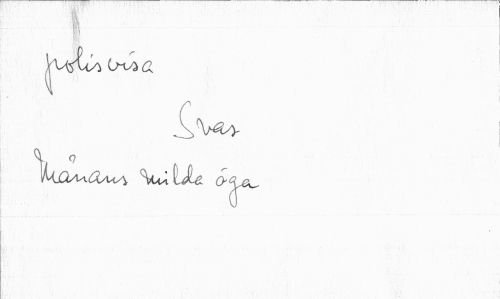 polisvisa
Svas
Månans milda öga